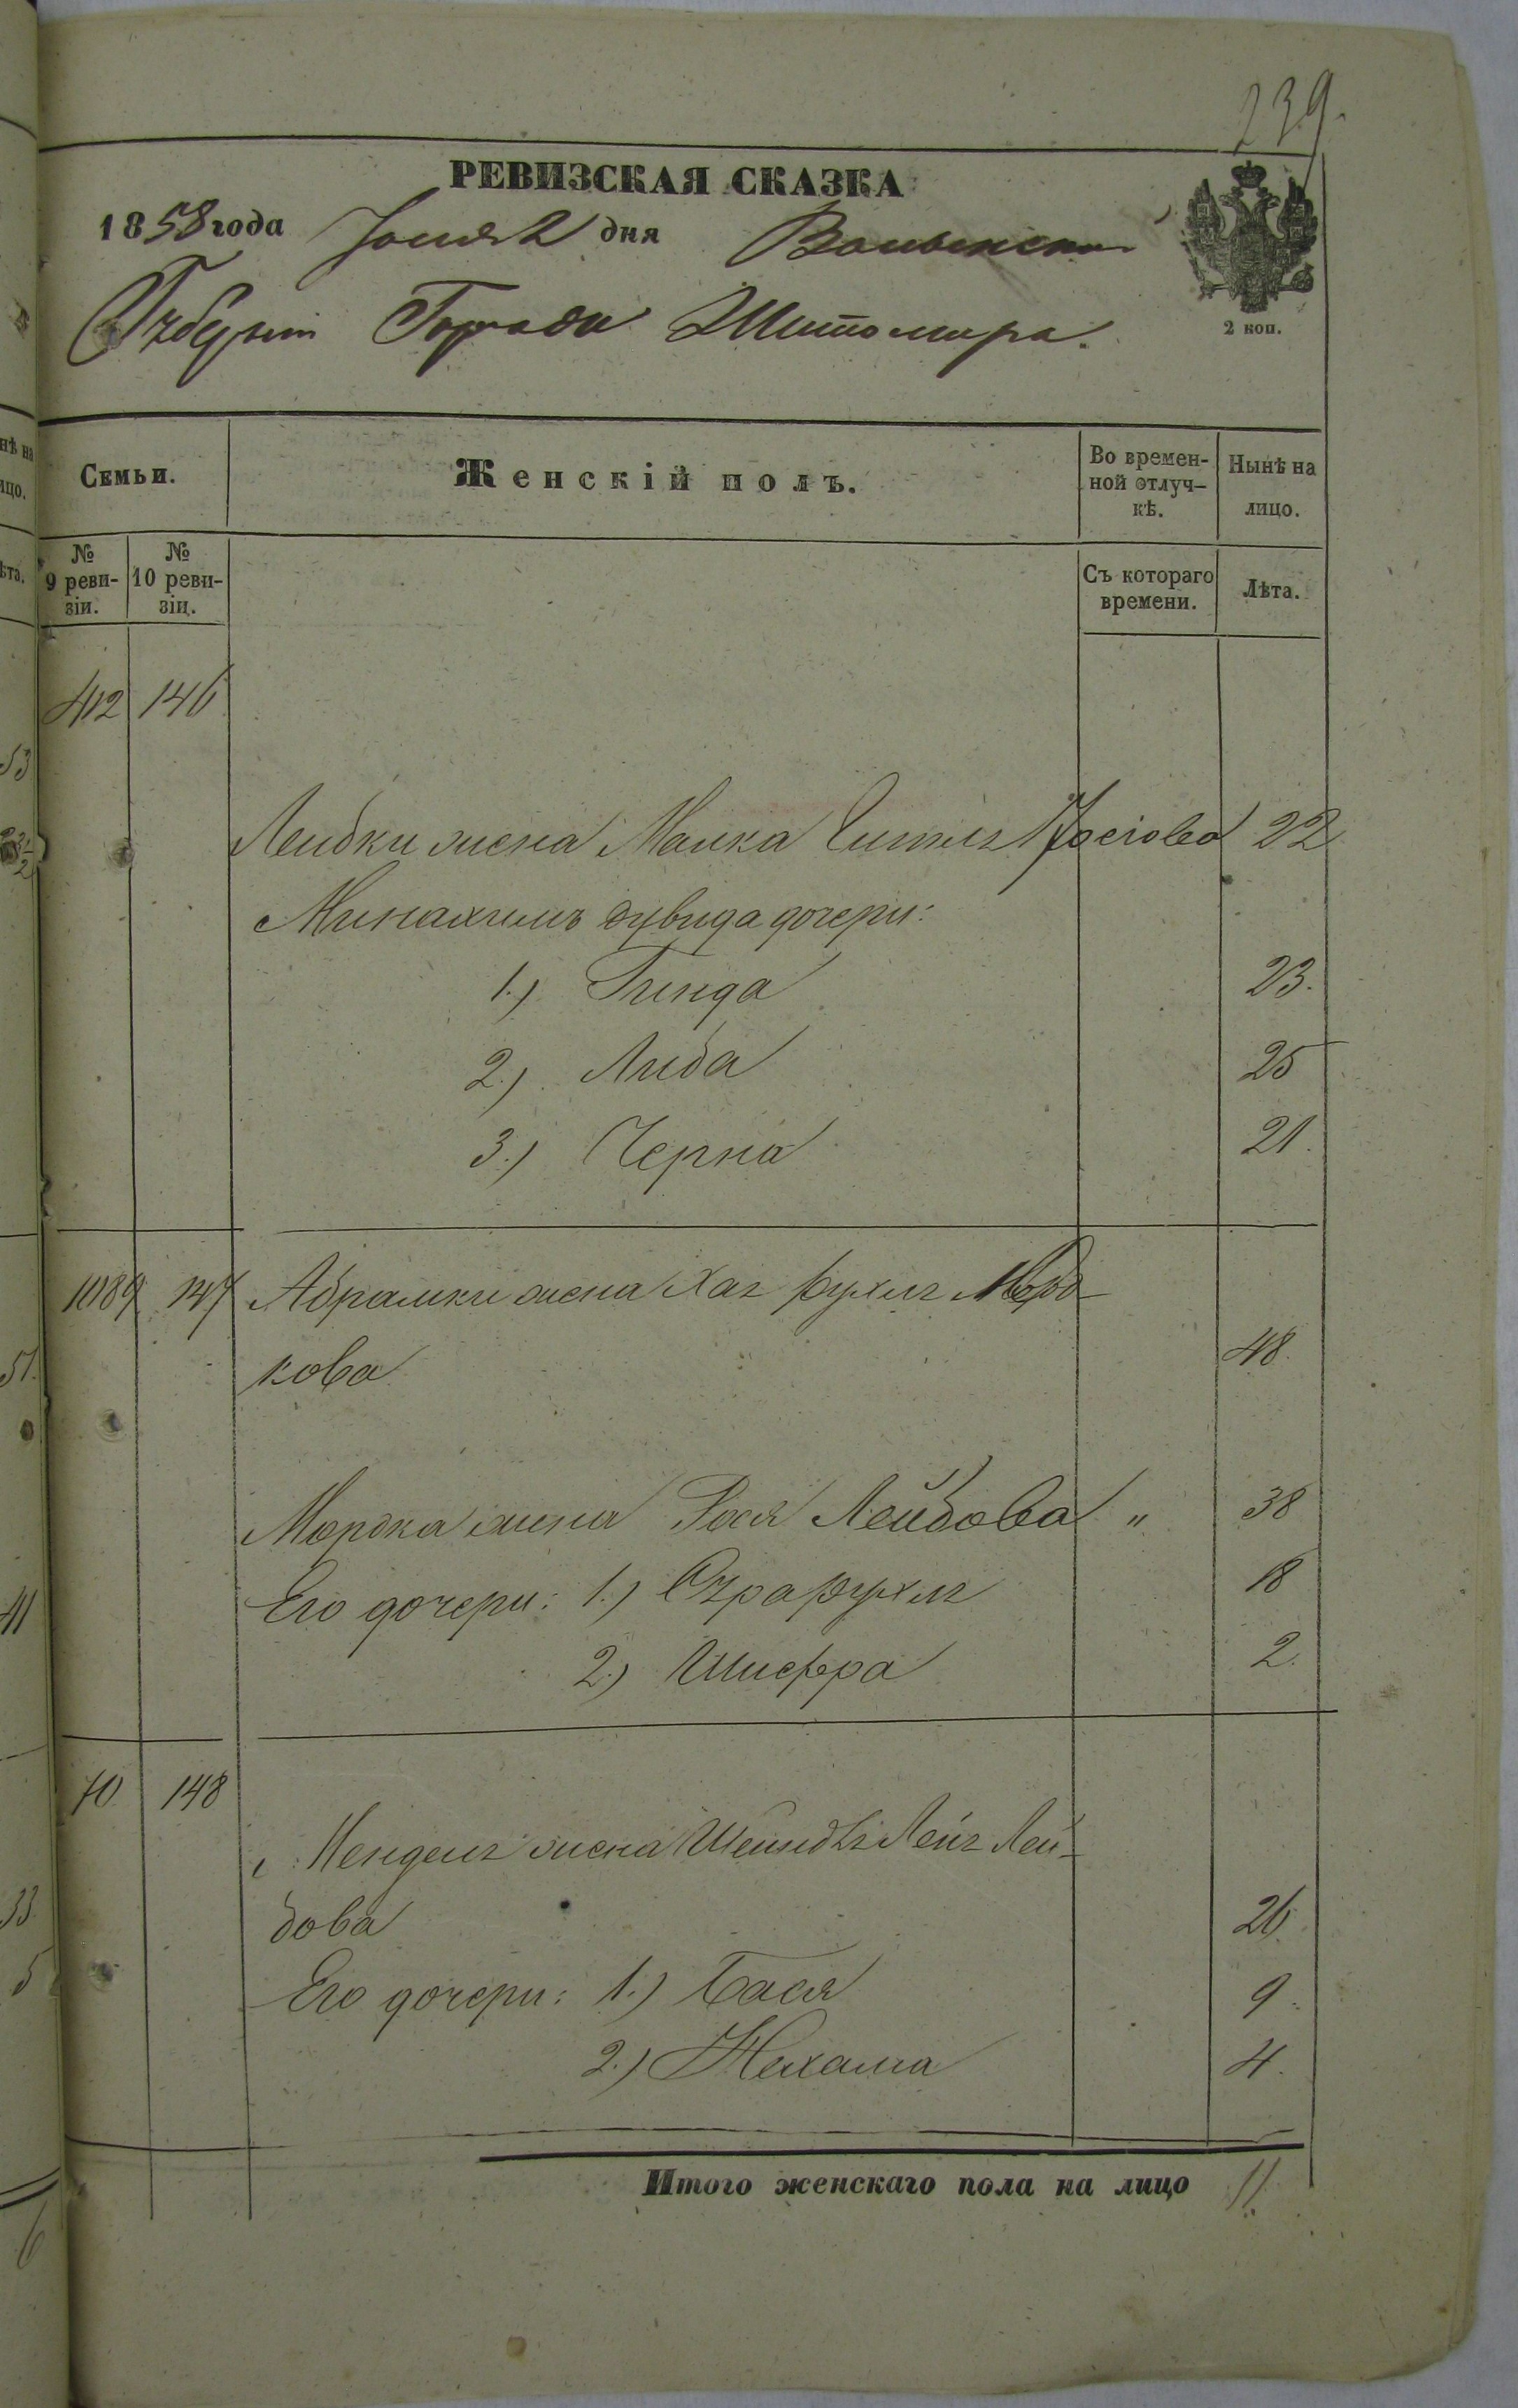 239.
РЕВИЗСКАЯ СКАЗКА
1858 года Іюня 2 дня Волынской
Губерніи Города Житомира.
2 коп.
Семьи.
Женскій полъ.
Во времен-
ной отлуч-
кѣ.
Нынѣ на
лицо.
№
9 реви-
зіи.
№
10 реви-
зіи.
Съ котораго
времени.
Лѣта.
412 146
Лейбки жена Малка Іосіова 22
Минахимъ Дувида дочери:
1.) Гинда 23.
2.) Либа 25
3.) Черна 21.
1089 147 Абрамки жена Хая Рухля Морд-
кова 48.
Мордка жена Рося Лейбова " 38
Его дочери: 1.) Сура Рухля 18
2.) Шифра 2.
70 148
Менделя жена Шейндля Лея Лей-
бова 26.
Его дочери: 1.) Бася 9.
2.) Нехама 4.
Итого женскаго пола на лицо 11.